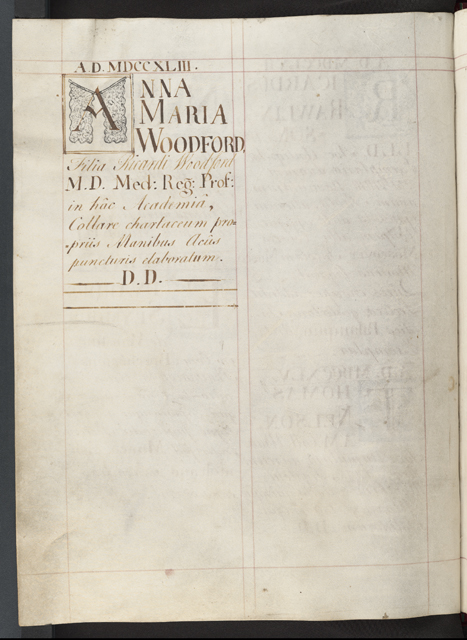 A.D. MDCCXLIII.
ANNA
MARIA
WOODFORD,
Filia Ricardi Woodford
M.D. Med: Reg: Prof:
in hâc Academiâ,
Collare chartaceum pro=
=priis Manibus Acûs
puncturis elaboratum.
D.D.